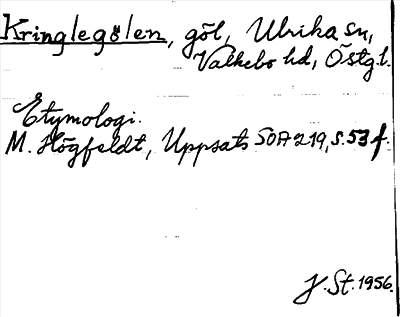 Kringlegölen, göl, Ulrika sn,
Valkebo hd, Östgl.
Etymologi.
M. Högfeldt, Uppsats SOA 219, s. 53 f.
J. St. 1956.